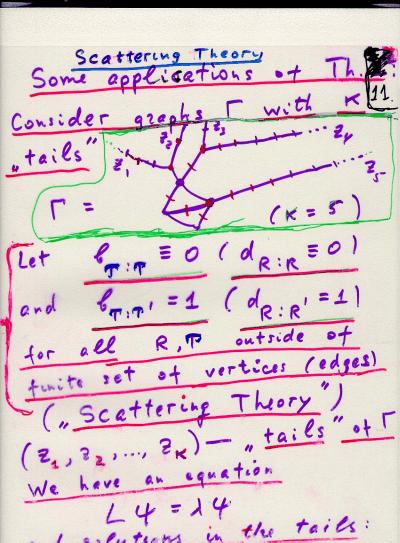 Scattering Theory
Some applications of Th. :
11.
Consider graphs Γ with K
„tails"
z₁ z₂ z₃ z₄ z₅
Γ = (K = 5)
Let b_{T:T} ≡ 0 (d_{R:R} ≡ 0)
and b_{T:T'} = 1 (d_{R:R'} = 1)
for all R, T outside of
finite set of vertices (edges)
(„Scattering Theory")
(z₁, z₂, ..., z_K) — „tails" of Γ
We have an equation
Lψ = λψ
solutions in the tails: